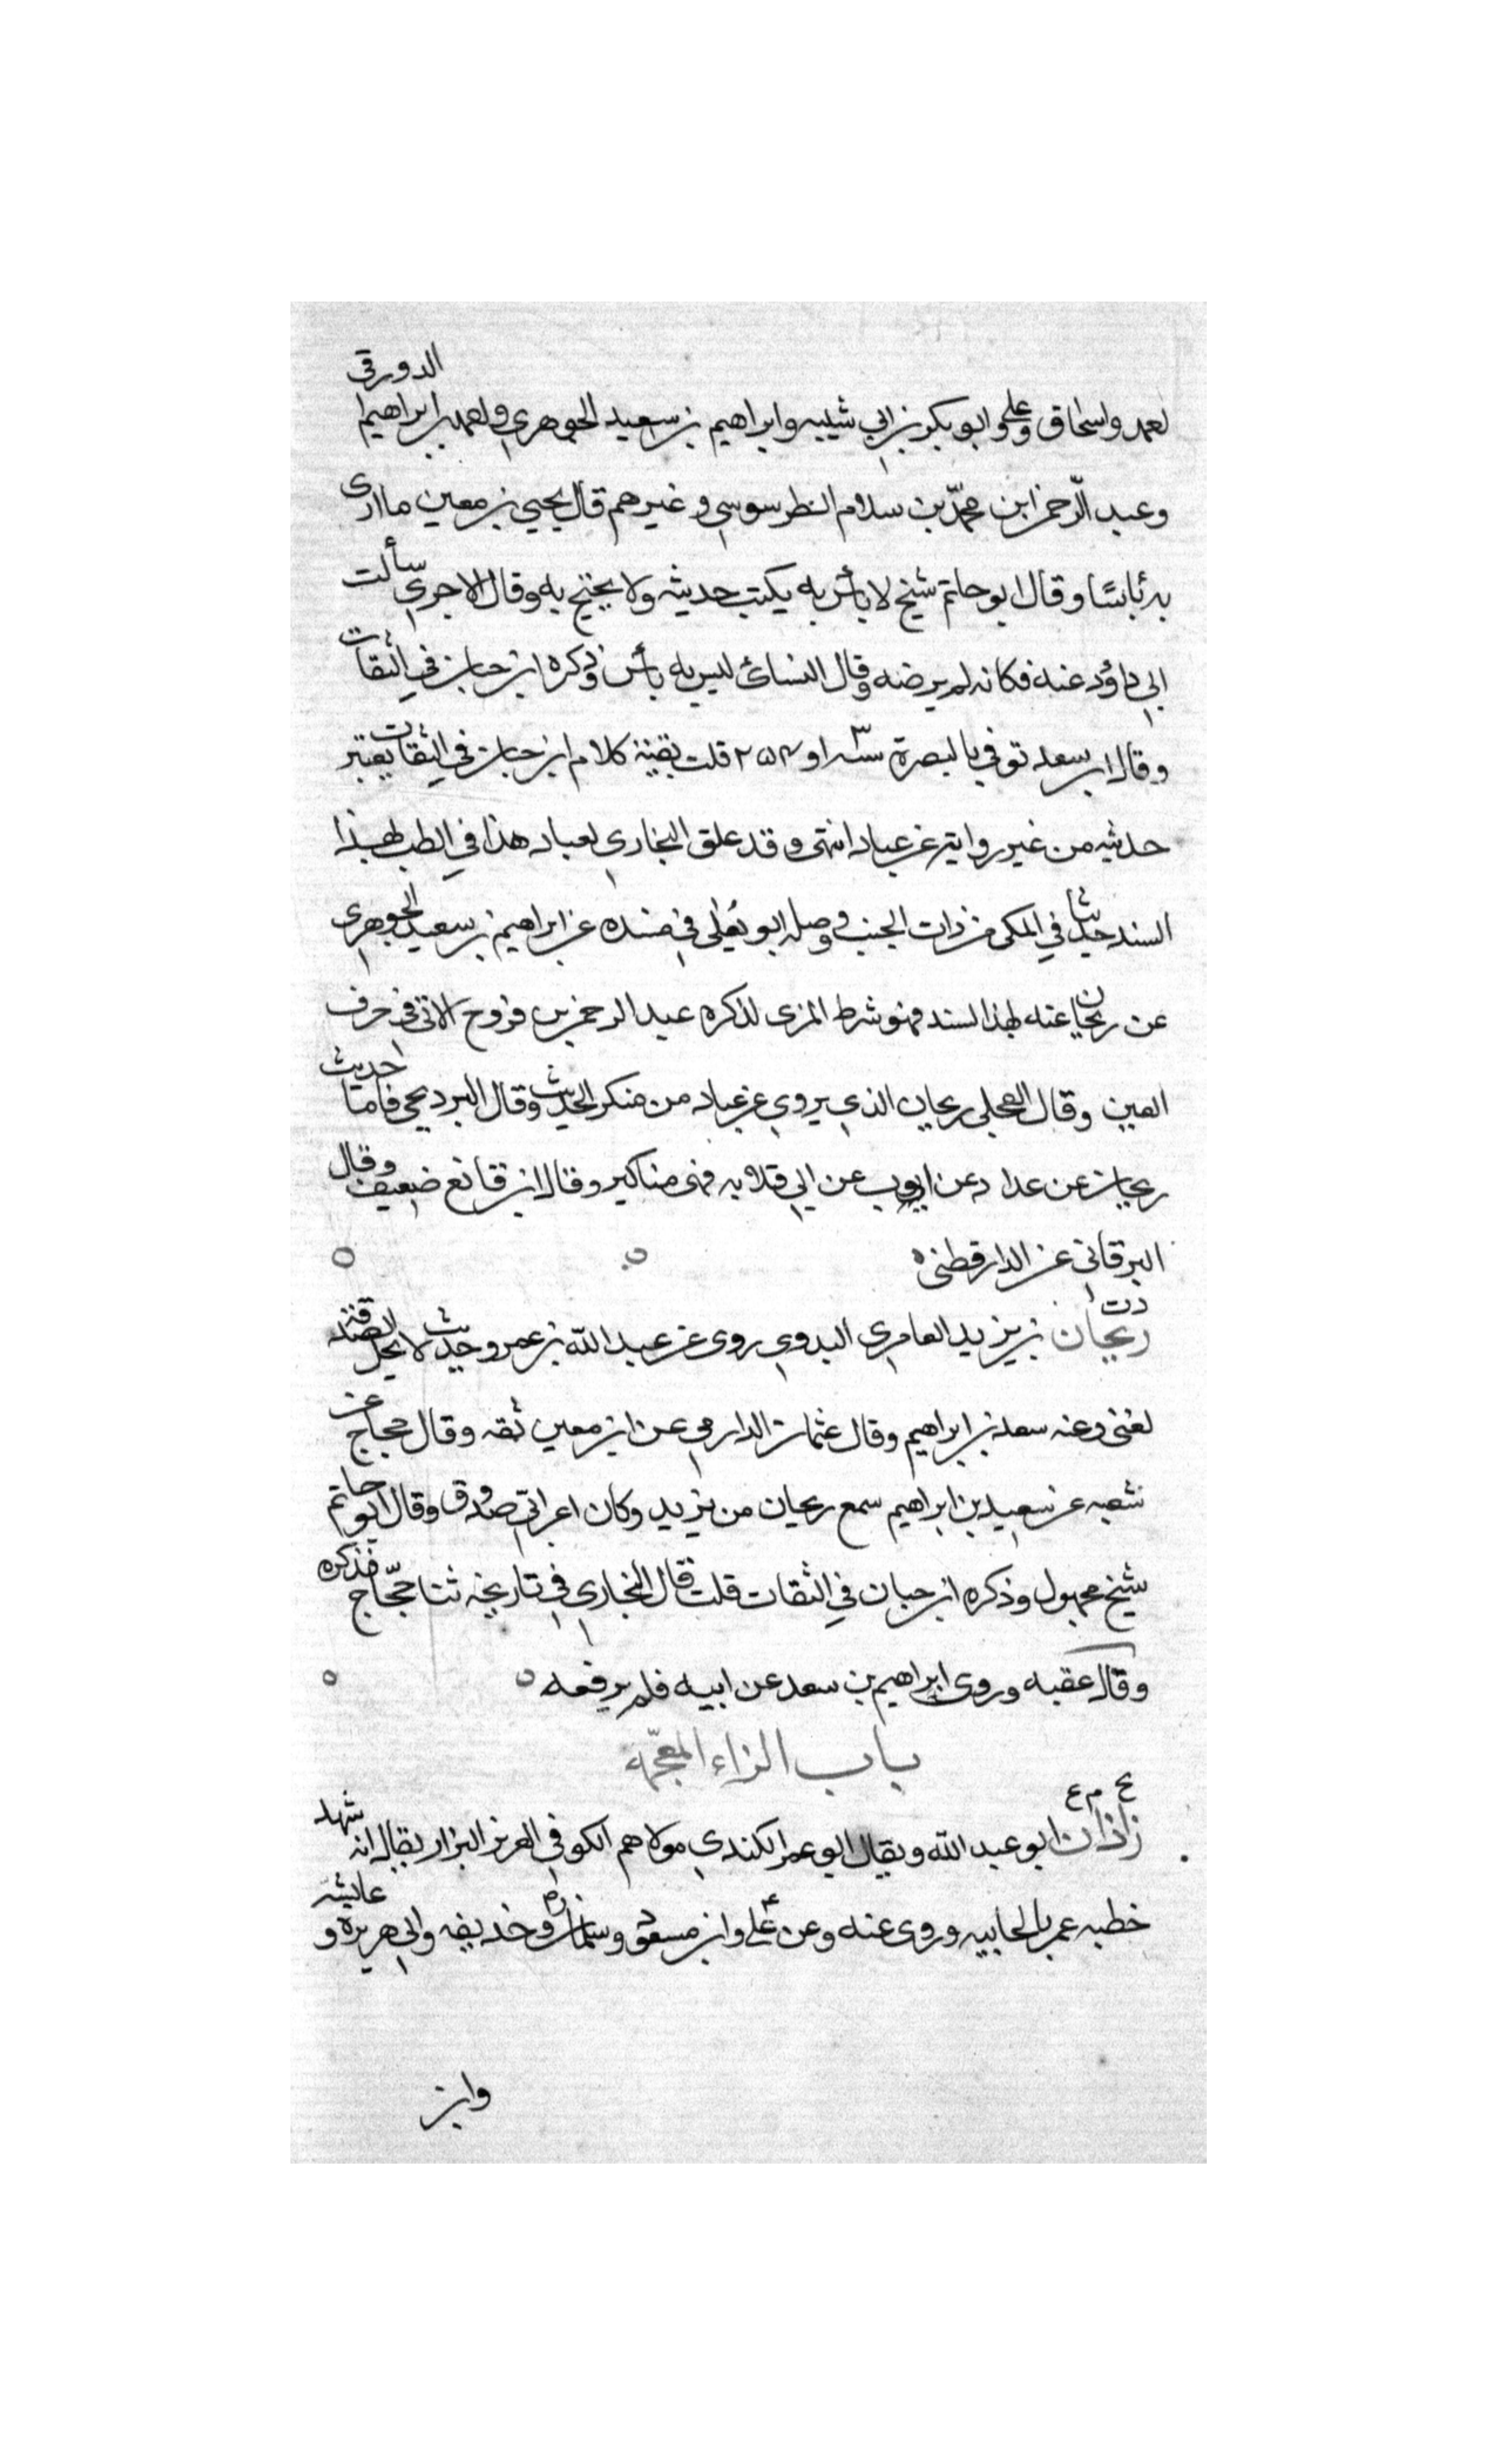 لعمد واسحاق وعلي وابو بكر بن ابي شيبه وابراهيم بن سعيد الجوهري واحمد بن ابراهيم الدورقي
وعبد الرحمن ابن محمد بن سلام الطرسوسي وغيرهم قال يحيى بن معين ما ارى
به باسا وقال ابو حاتم شيخ لا بأس به يكتب حديثه ولا يحتج به وقال الاجري سألت
ابي داؤد عنه فكانه لم يرضه وقال النسائ ليس به بأس وذكره ابن حبان في الثقات
وقال ابن سعد توفي بالبصرة سنة او ٢٥٤ قلت بقية كلام ابن حبان في الثقات يعتبر
حديثه من غير روايته عن عباد انتهى وقد علق البخاري لعباد هذا في الطب بهذا
السند حديثا في المكى من ذات الجنب ووصله ابو يعلى في مسنده عن ابراهيم بن سعيد الجوهري
عن ريحان عنه بهذا السند فهو شرط المزى لذكره عبد الرحمن بن فروخ الاتى في حرف
العين وقال العجلى ريحان الذي يروي عن عباد من منكر الحديث وقال البرديجي فاما حديث
ريحان عن عداد عن ايوب عن ابي قلابه فهى مناكير وقال ابن قانع ضعيف وقال
البرقاني عن الدارقطنى ه
د ت
ريحان بن يزيد العامري البدوي روى عن عبد الله بن عمرو حديث لا تحل الصدقة
لغنى وعنه سعد بن ابراهيم وقال عثمان الدارمي عن ابن معين ثقه وقال حجاج عن
شعبه عن سعيد بن ابراهيم سمع ريحان من يزيد وكان اعرابي صدوق وقال ابو حاتم
شيخ مجهول وذكره ابن حبان في الثقات قلت قال البخاري في تاريخه ثنا حجاج فذكره
وقال عقبه وروى ابراهيم بن سعد عن ابيه فلم يرفعه ه
باب الزاء المعجمه
بخ م ع
زاذان ابو عبد الله ويقال ابو عمر الكندي مولاهم الكوفي الضرير البزار يقال انه شهد
خطبه عمر بالجابيه وروى عنه وعن علي وابن مسعود وسلمان وحذيفه وابي هريرة و عايشه
وابن